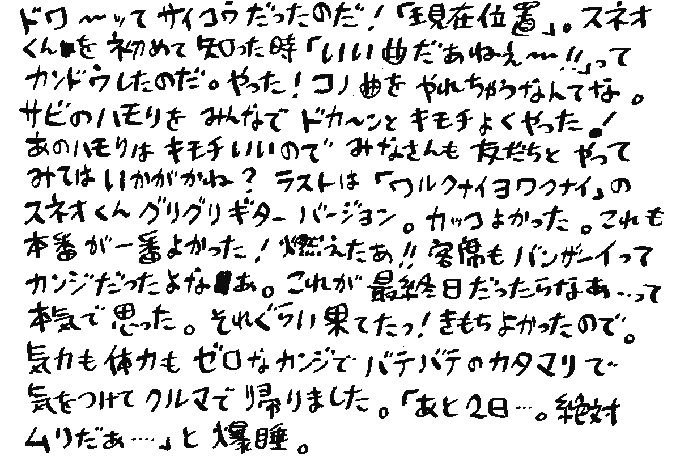 ドワ〜ッてサイコウだったのだ!「現在位置」。スネオ
くんを初めて知った時「いい曲だあねえ〜!!」って
カンドウしたのだ。やった!コノ曲をやれちゃうなんてな。
サビのハモりをみんなでドカ〜ンとキモチよくやった!
あのハモりはキモチいいのでみなさんも友だちとやって
みてはいかがかね?ラストは「ワルクナイヨワクナイ」の
スネオくんグリグリギターバージョン。カッコよかった。これも
本番が一番よかった!燃えたあ!!客席もバンザーイって
カンジだったよなあ。これが最終日だったらなあ…って
本気で思った。それぐらい果てたっ!きもちよかったので。
気力も体力もゼロなカンジでバテバテのカタマリで
気をつけてクルマで帰りました。「あと2日…。絶対
ムリだぁ…」と爆睡。